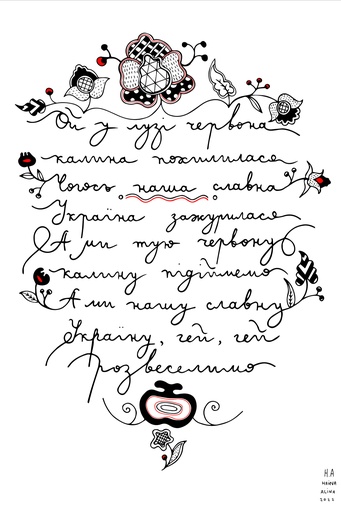 Ой у лузі червона
калина похилилася
Чогось наша славна
Україна зажурилася
А ми тую червону
калину підіймемо
А ми нашу славну
Україну, гей, гей
розвеселимо
НА
ALINA
2022